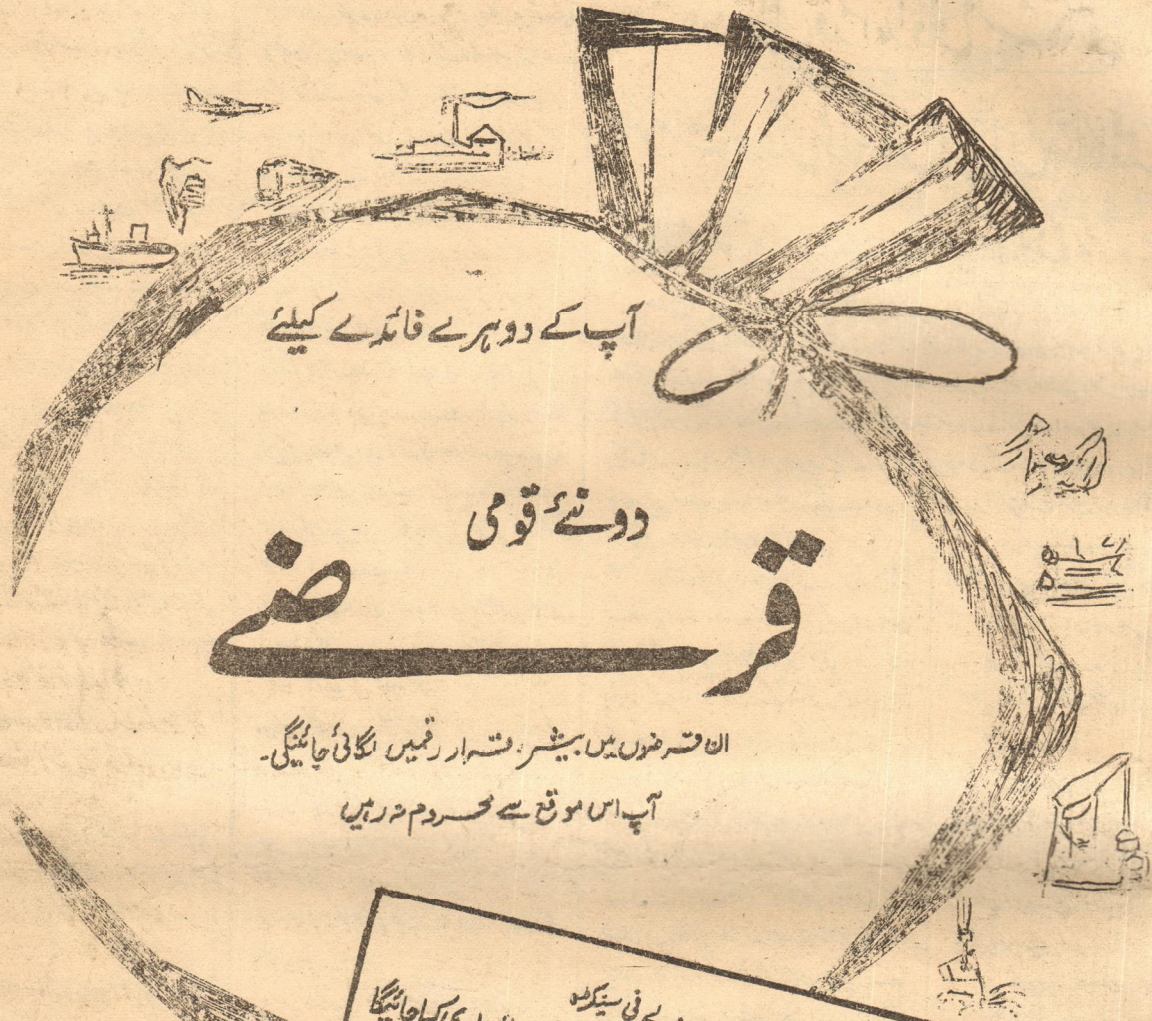 آپ کے دوہرے فائدے کیلئے
دونئے قومی
قرضے
ان قرضوں میں بیشتر رقمیں لگائی جائینگی۔
آپ اس موقع سے محروم نہ رہیں
فی سینکڑہ
کیا جائیگا